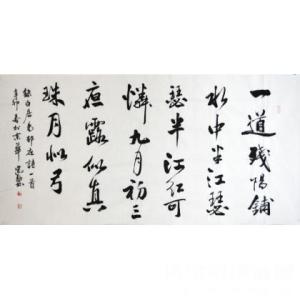 一道残陽鋪
水中半江瑟
瑟半江红可
憐九月初三
夜露似真
珠月似弓
錄白居易詩一首
辛卯春於京華